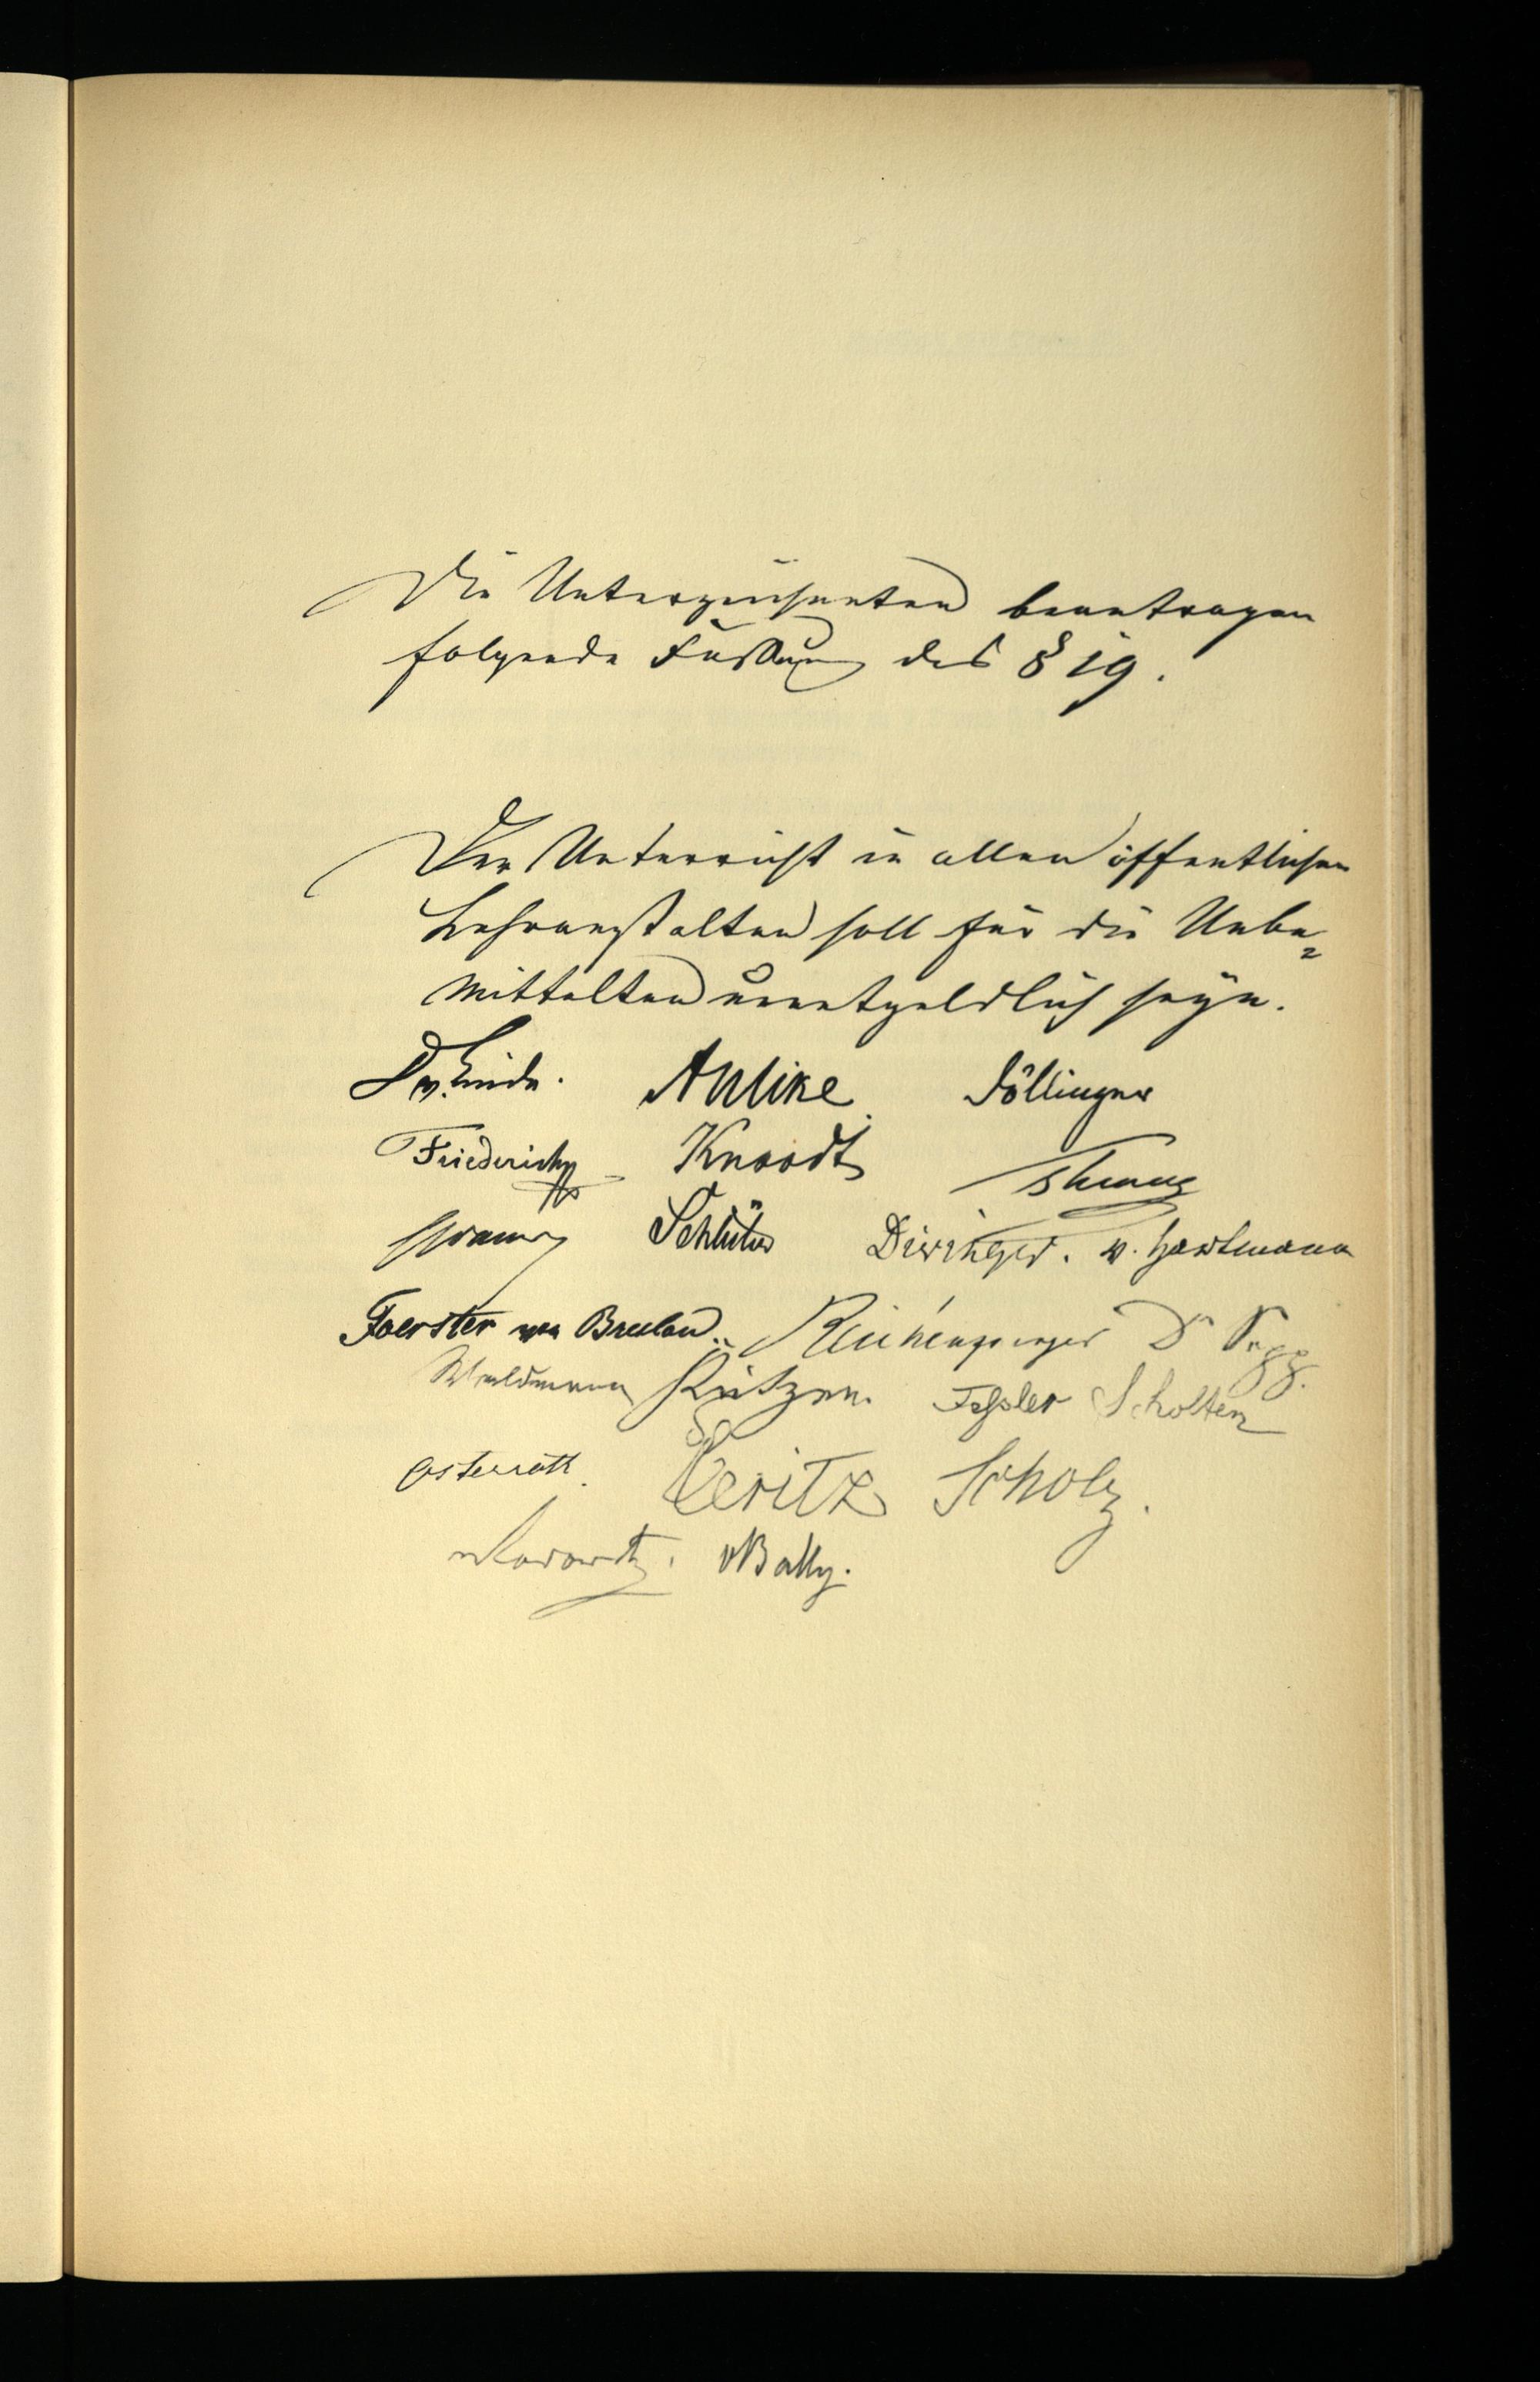 Die Unterzeichneten beantragen
folgende Fassung des § 19.
Der Unterricht in allen öffentlichen
Lehranstalten soll für die Unbe=
mittelten unentgeldlich seyn.
v. Linde. Aulike. Döllinger
Friederich Knoodt
Schlüter Dieringer. v. Hartmann
Foerster von Breslau. Reichensperger Dr Sepp.
Waldmann Kützen. Feßler Scholten
Osterrath. Geritz Scholz.
vBally.